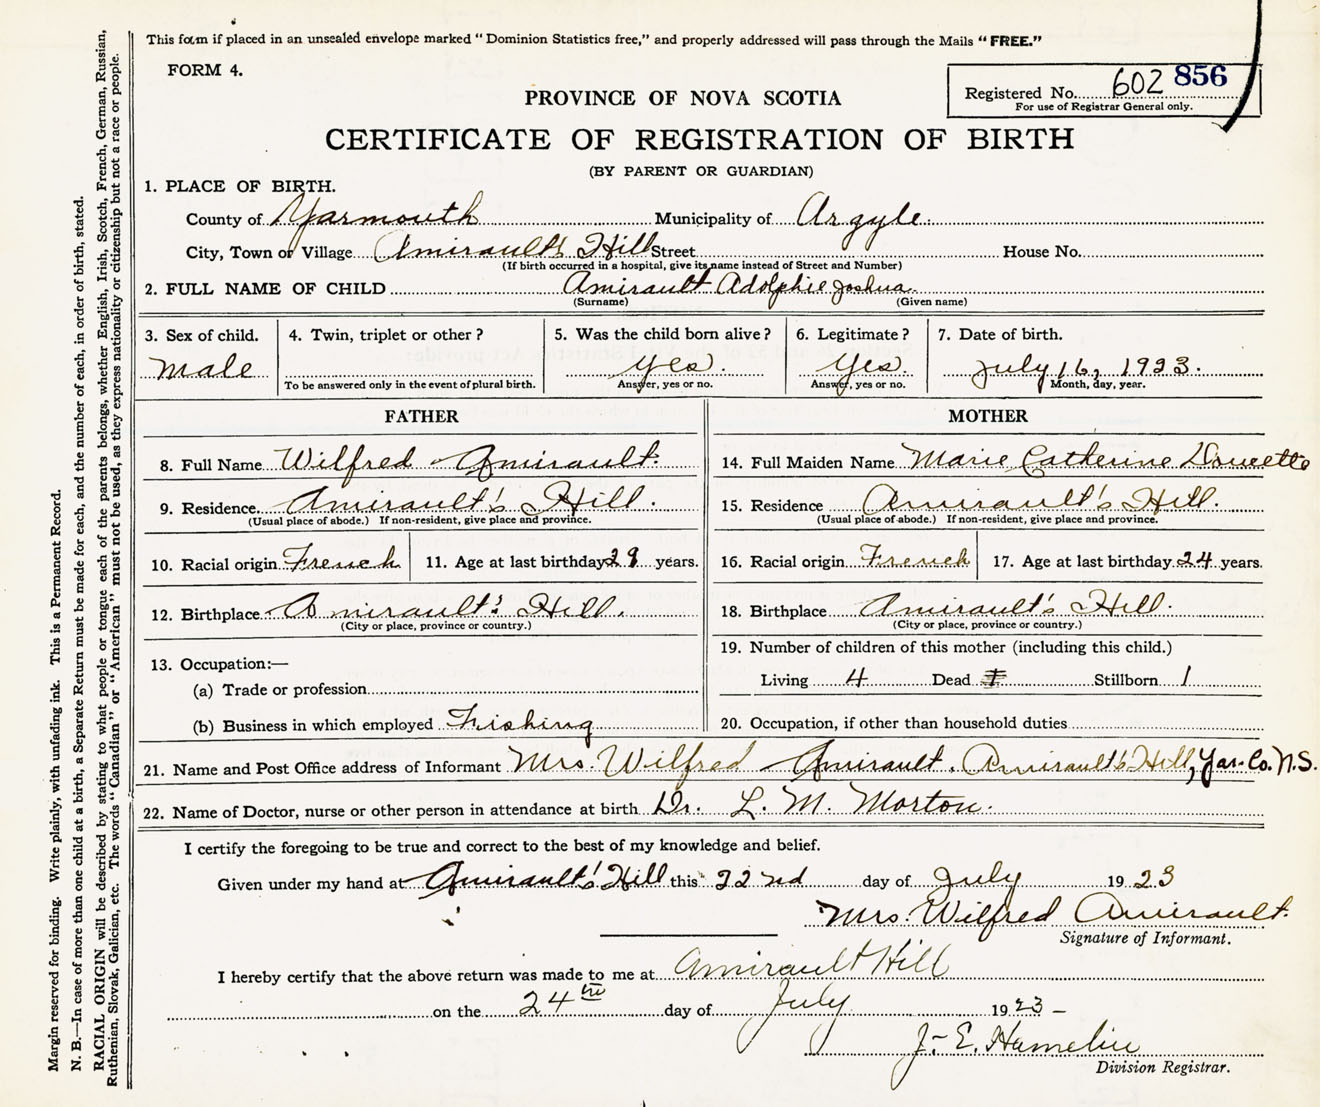 This form if placed in an unsealed envelope marked "Dominion Statistics free," and properly addressed will pass through the Mails "FREE."
FORM 4.
Registered No. 602 856
For use of Registrar General only.
PROVINCE OF NOVA SCOTIA
CERTIFICATE OF REGISTRATION OF BIRTH
(BY PARENT OR GUARDIAN)
1. PLACE OF BIRTH.
County of Yarmouth Municipality of Argyle.
City, Town or Village Amirault's Hill Street House No.
(If birth occurred in a hospital, give its name instead of Street and Number)
2. FULL NAME OF CHILD Amirault Adolphie Joshua.
(Surname) (Given name)
3. Sex of child. 4. Twin, triplet or other? 5. Was the child born alive? 6. Legitimate? 7. Date of birth.
male yes. Yes. July 16, 1923.
To be answered only in the event of plural birth. Answer, yes or no. Answer, yes or no. Month, day, year.
FATHER
8. Full Name Wilfred Amirault.
9. Residence Amirault's Hill.
(Usual place of abode.) If non-resident, give place and province.
10. Racial origin French 11. Age at last birthday 29 years.
12. Birthplace Amirault's Hill.
(City or place, province or country.)
13. Occupation:—
(a) Trade or profession
(b) Business in which employed Fishing
MOTHER
14. Full Maiden Name Marie Catherine Doucette
15. Residence Amirault's Hill.
(Usual place of abode.) If non-resident, give place and province.
16. Racial origin French 17. Age at last birthday 24 years.
18. Birthplace Amirault's Hill.
(City or place, province or country.)
19. Number of children of this mother (including this child.)
Living 4 Dead Stillborn 1
20. Occupation, if other than household duties
21. Name and Post Office address of Informant Mrs. Wilfred Amirault. Amirault's Hill, Yar. Co. N.S.
22. Name of Doctor, nurse or other person in attendance at birth Dr. L. M. Morton.
I certify the foregoing to be true and correct to the best of my knowledge and belief.
Given under my hand at Amirault's Hill this 22nd day of July 1923
Mrs. Wilfred Amirault.
Signature of Informant.
I hereby certify that the above return was made to me at Amirault Hill
on the 24th day of July 1923 –
J. E. Hamelin
Division Registrar.
Margin reserved for binding. Write plainly, with unfading ink. This is a Permanent Record.
N. B.—In case of more than one child at a birth, a Separate Return must be made for each, and the number of each, in order of birth, stated.
RACIAL ORIGIN will be described by stating to what people or tongue each of the parents belongs, whether English, Irish, Scotch, French, German, Russian,
Ruthenian, Slovak, Galician, etc. The words "Canadian" or "American" must not be used, as they express nationality or citizenship but not a race or people.